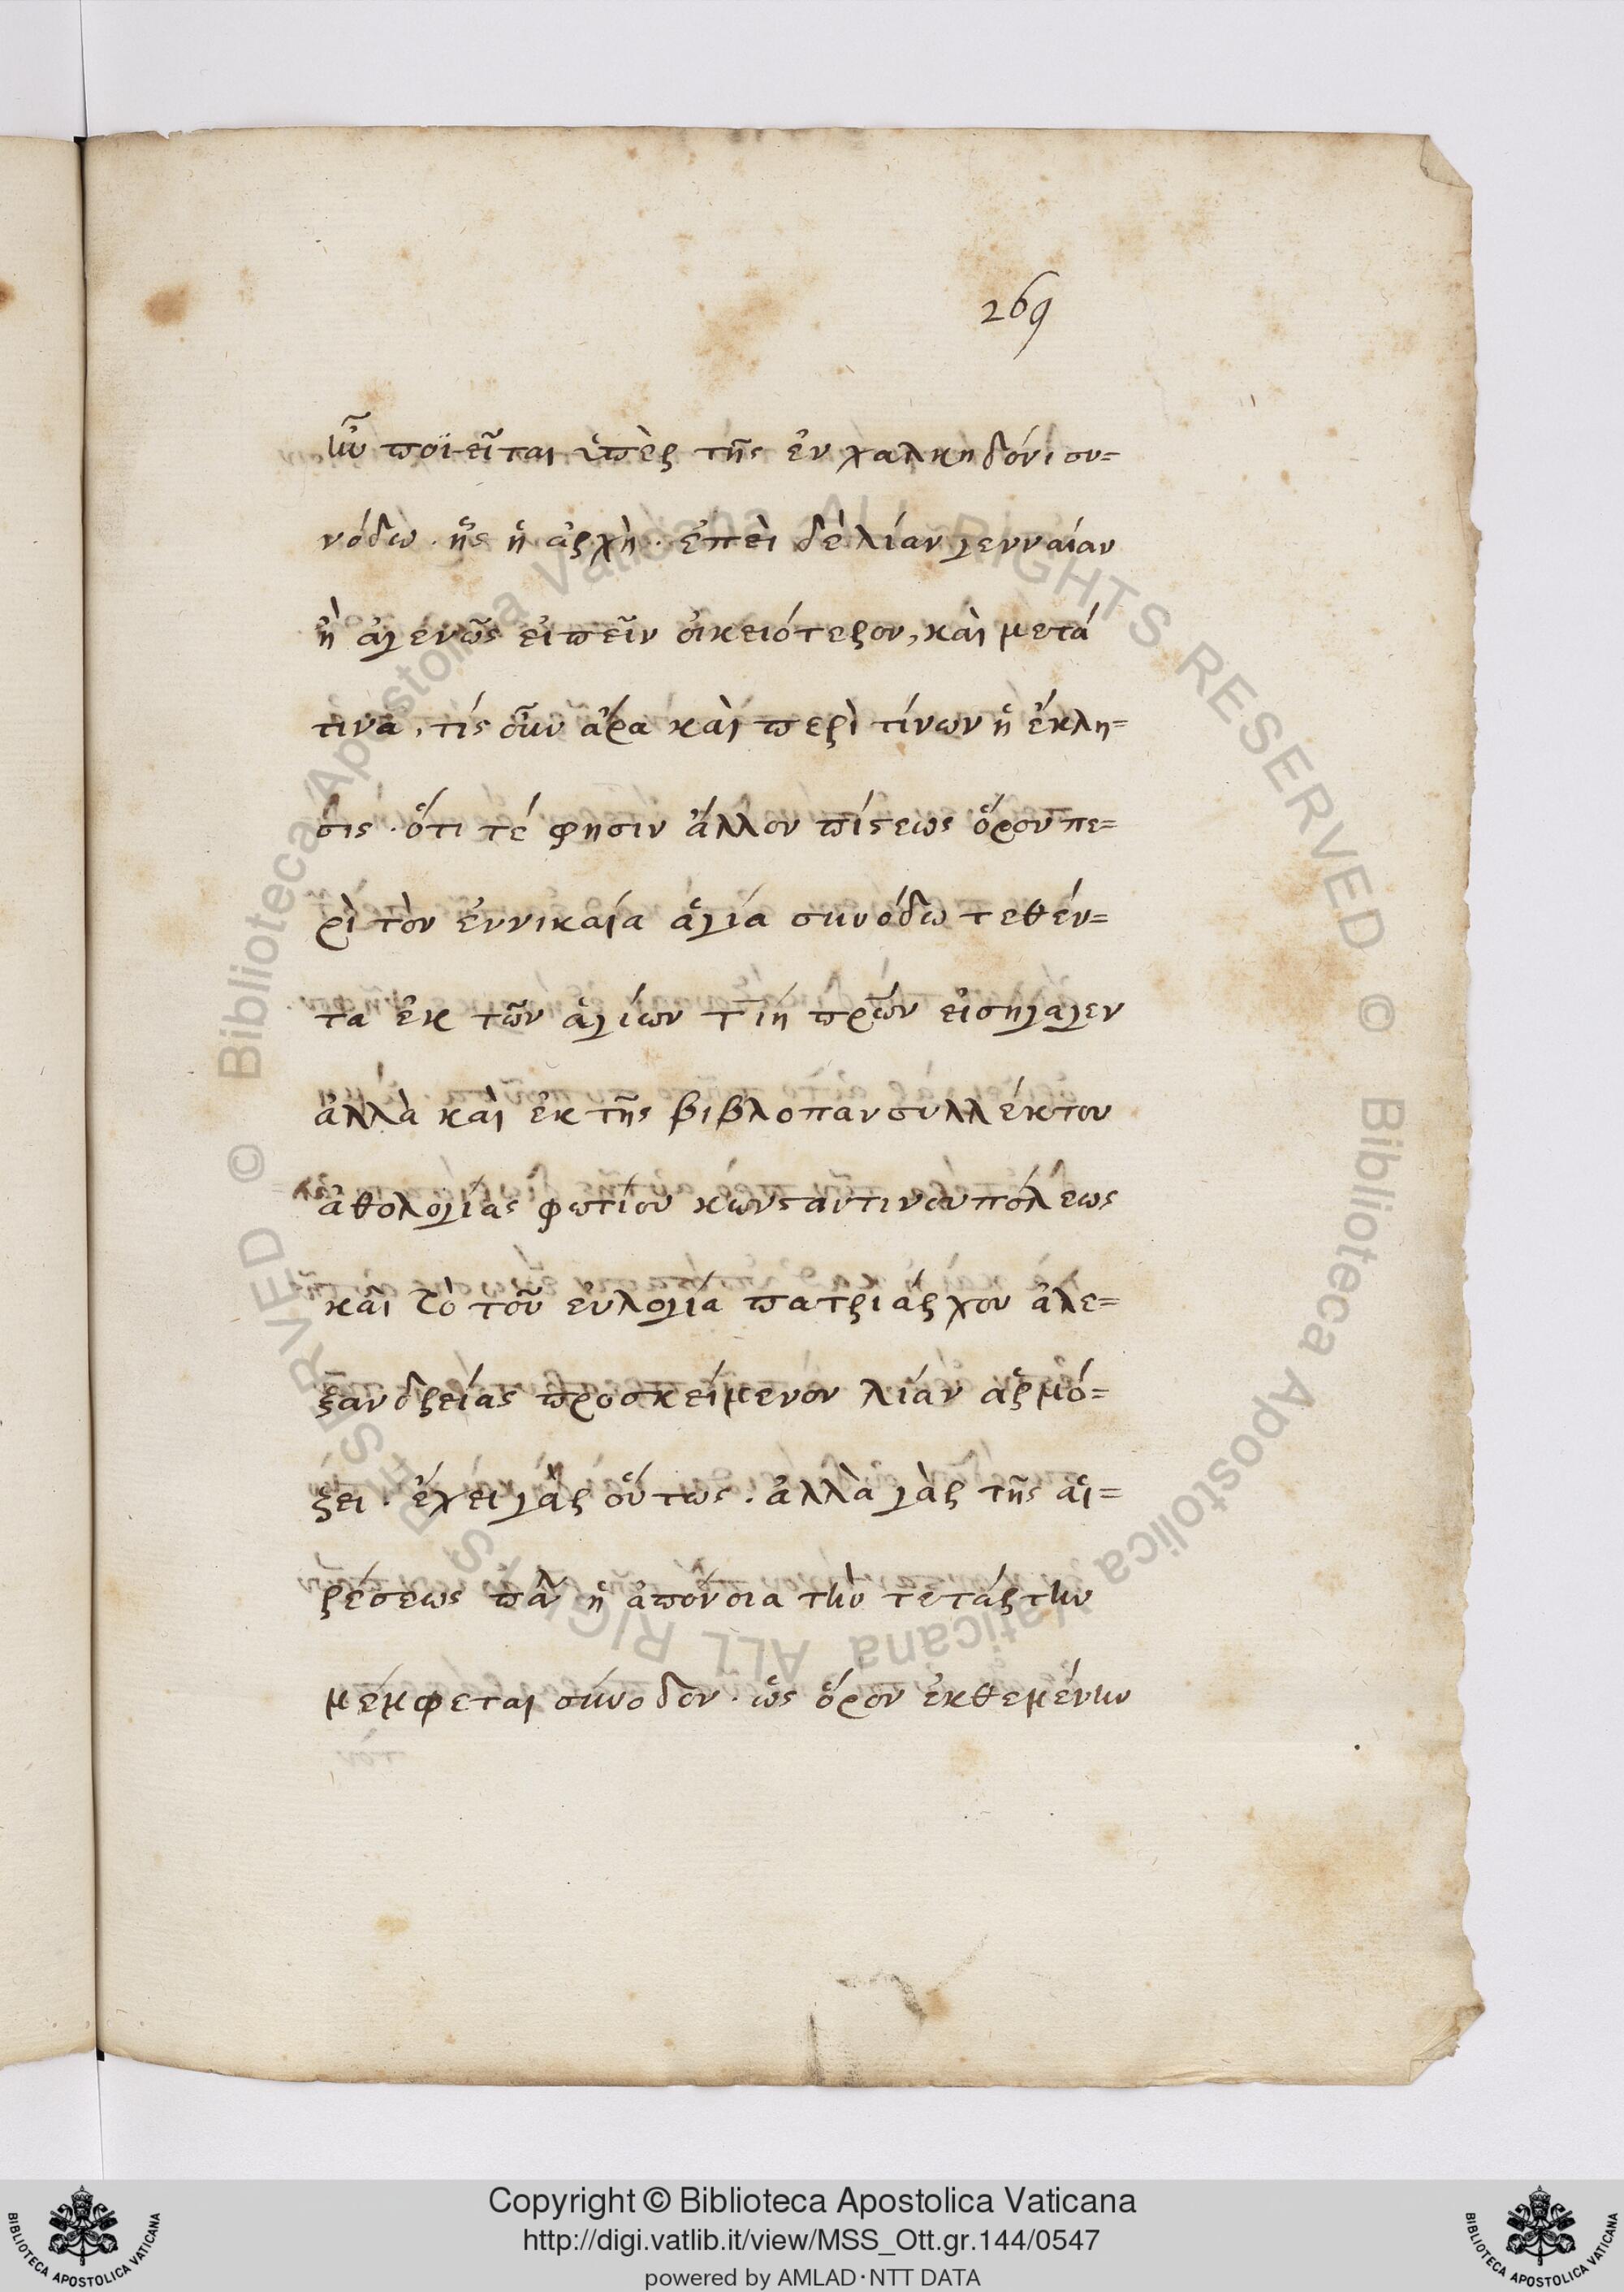 269
ὧν ποϊεῖται ὑπὲρ τῆς ἐν χαλκηδόνι συ=
νόδω . ἧς ἡ ἀρχὴ . ἐπεὶ δὲ λίαν γενναίαν
ἢ ἀγενῶς εἰπεῖν οἰκειότερον, καὶ μετά
τινα, τίς οὖν ἄρα καὶ περὶ τίνων ἡ ἔκλη=
σις . ὅτι τέ φησιν ἄλλον πίστεως ὅρον πε=
ρὶ τὸν ἐννικαία ἁγία συνόδω τεθέν=
τα ἐκ τῶν ἁγίων τιη πρων εἰσηγαγεν
ἀλλὰ καὶ ἐκ τῆς βιβλοπανσυλλέκτου
ἀθολογίας φωτίου κωνσταντινουπόλεως
καὶ τὸ τοῦ ευλογία πατριάρχου ἀλε=
ξανδρείας προσκείμενον λίαν αρμό=
ξει . ἔχει γὰρ οὕτως . ἀλλὰ γὰρ τῆς αἱ=
ρέσεως πᾶν ἡ ἀπόνοια τὴν τετάρτην
μέμφεται σύνοδον . ὡς ὅρον ἐκθεμένην
Copyright © Biblioteca Apostolica Vaticana
http://digi.vatlib.it/view/MSS_Ott.gr.144/0547
powered by AMLAD・NTT DATA
© Biblioteca Apostolica Vaticana ALL RIGHTS RESERVED © Biblioteca Apostolica Vaticana ALL RIGHTS RESERVED
BIBLIOTECA APOSTOLICA VATICANA
BIBLIOTECA APOSTOLICA VATICANA